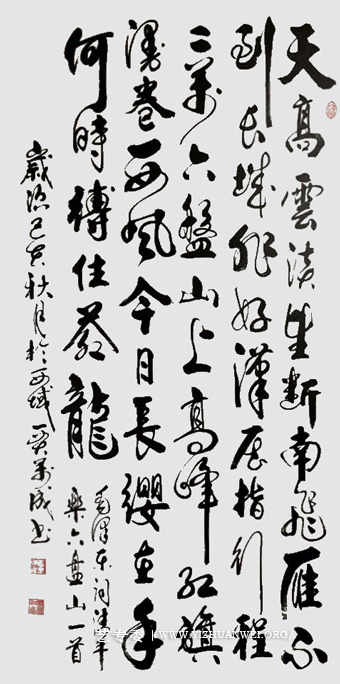 天高雲淡望斷南飛雁不
到長城非好漢屈指行程
二萬六盤山上高峰紅旗
漫卷西風今日長纓在手
何時縛住蒼龍
毛澤東詞清平
樂六盤山一首
歲次己亥秋月於西域賈萬成書
WWW.YIZHUANWEI.ORG/